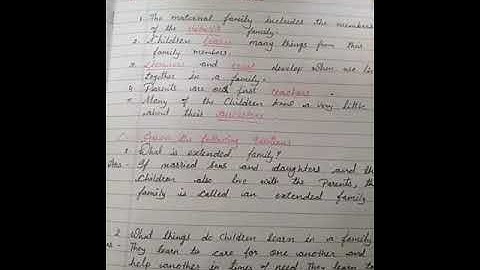 1. The maternal family includes the members
of the mother's family.
2. Children learn many things from their
family members.
3. Closeness and trust develop when we live
together in a family.
4. Parents are our first teachers.
5. Many of the children know a very little
about their ancestors
C. Answer the following questions
1. What is extended family?
Ans - If married sons and daughters and the
children also live with the Parents, the
family is called an extended family
2. What things do children learn in a family
- They learn to care for one another and
help another in times of need They learn to